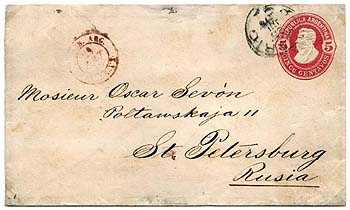 REPUBLICA ARGENTINA
5
CINCO CENTAVOS
ARG.
Mosieur Oscar Sevón
Poltawskaja 11
St. Petersburg
Rusia